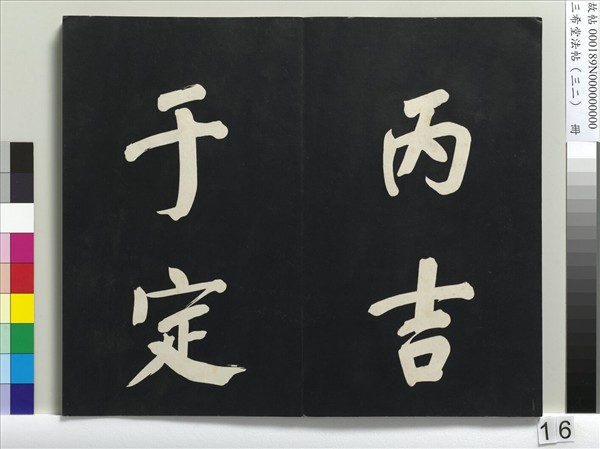 丙吉
于定
故帖 000189N000000000
三希堂法帖（三二） 冊
16